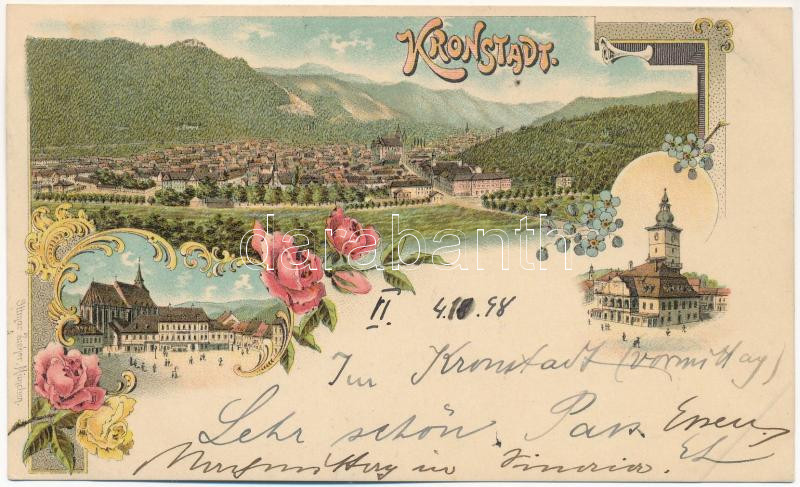 KRONSTADT.
darabanth
II 4.10.98
In Kronstadt (vormittag)
Sehr schön. Pass. Essen.
Nachmittag in Sinaia.
Ottmar Zieher, München.